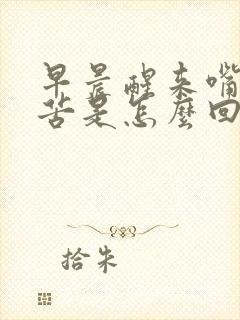 早晨醒来嘴
苦是怎麼回
拾朱